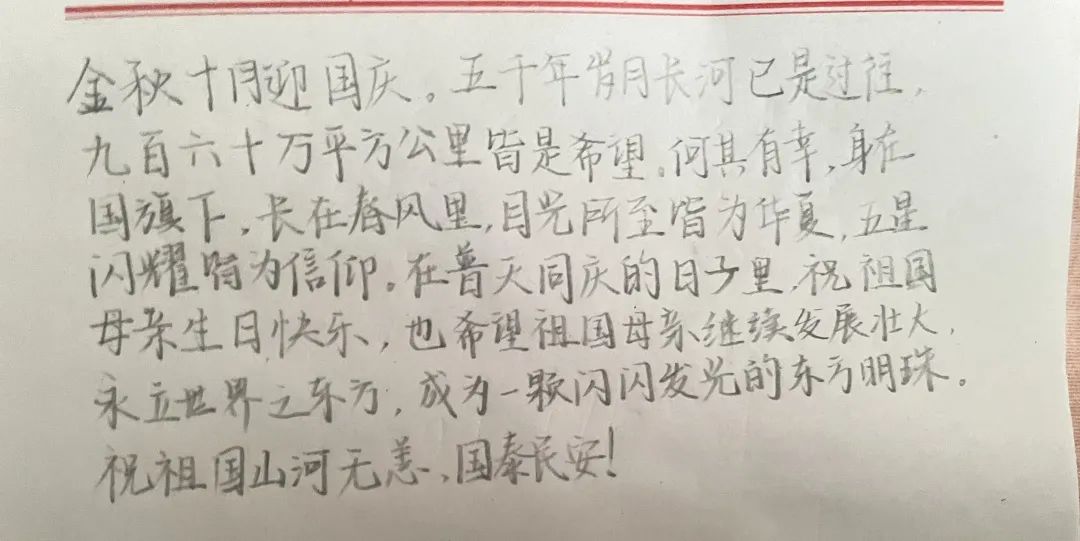 金秋十月迎国庆。五千年岁月长河已是过往,
九百六十万平方公里皆是希望。何其有幸,身在
国旗下,长在春风里,目光所至皆为华夏,五星
闪耀皆为信仰。在普天同庆的日子里,祝祖国
母亲生日快乐,也希望祖国母亲继续发展壮大,
永立世界之东方,成为一颗闪闪发光的东方明珠。
祝祖国山河无恙、国泰民安!